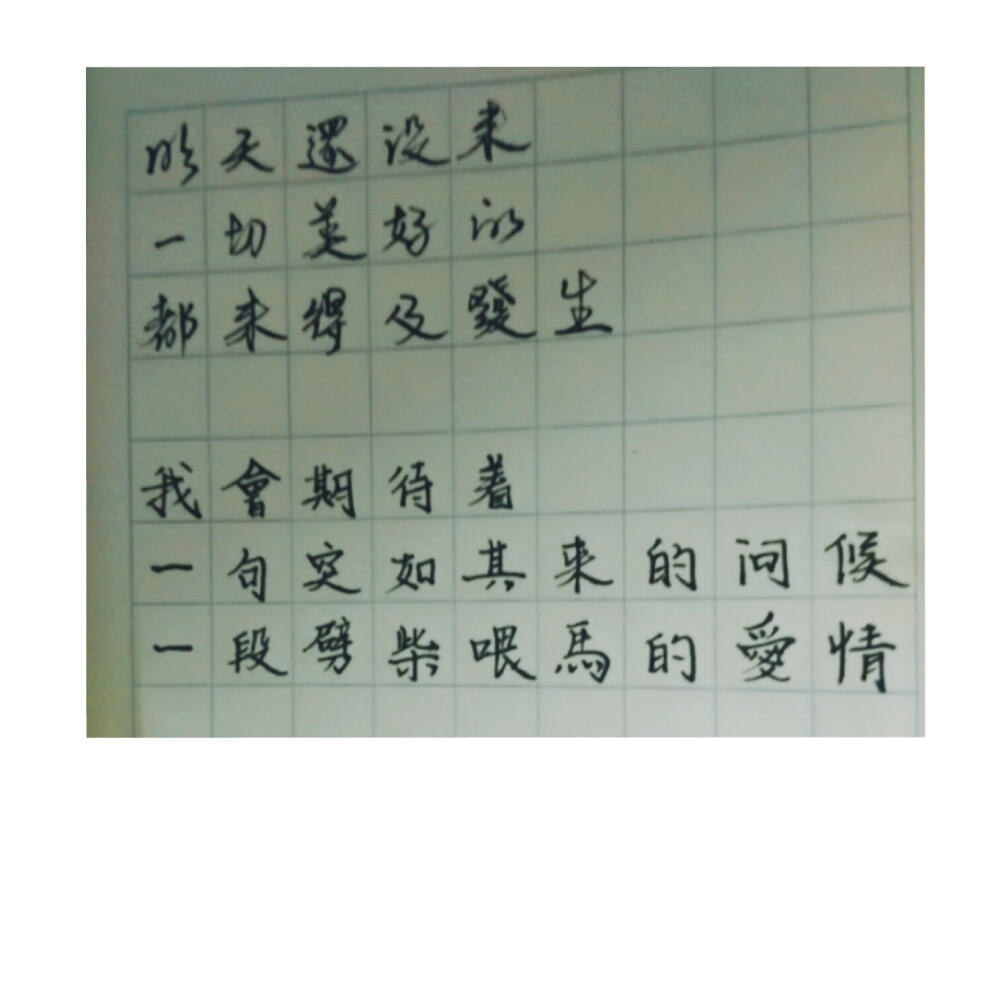 明天還没来
一切美好的
都来得及發生
我會期待着
一句突如其来的问候
一段劈柴喂馬的愛情